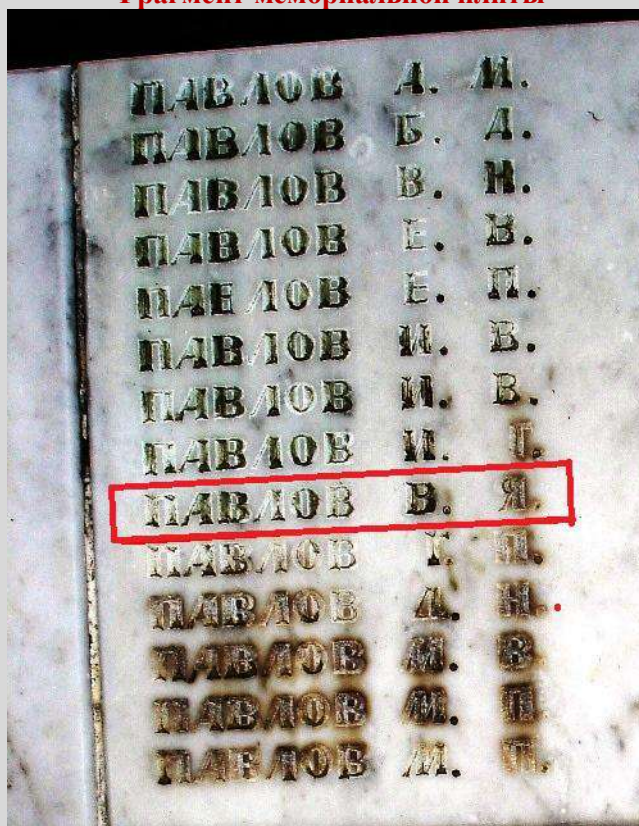 Фрагмент мемориальной плиты
ПАВЛОВ А. М.
ПАВЛОВ Б. А.
ПАВЛОВ В. Н.
ПАВЛОВ Е. В.
ПАВЛОВ Е. П.
ПАВЛОВ И. В.
ПАВЛОВ И. В.
ПАВЛОВ И. Г.
ПАВЛОВ В. Я.
ПАВЛОВ П.
ПАВЛОВ Н.
ПАВЛОВ М. В.
ПАВЛОВ М. П.
ПАВЛОВ М. П.